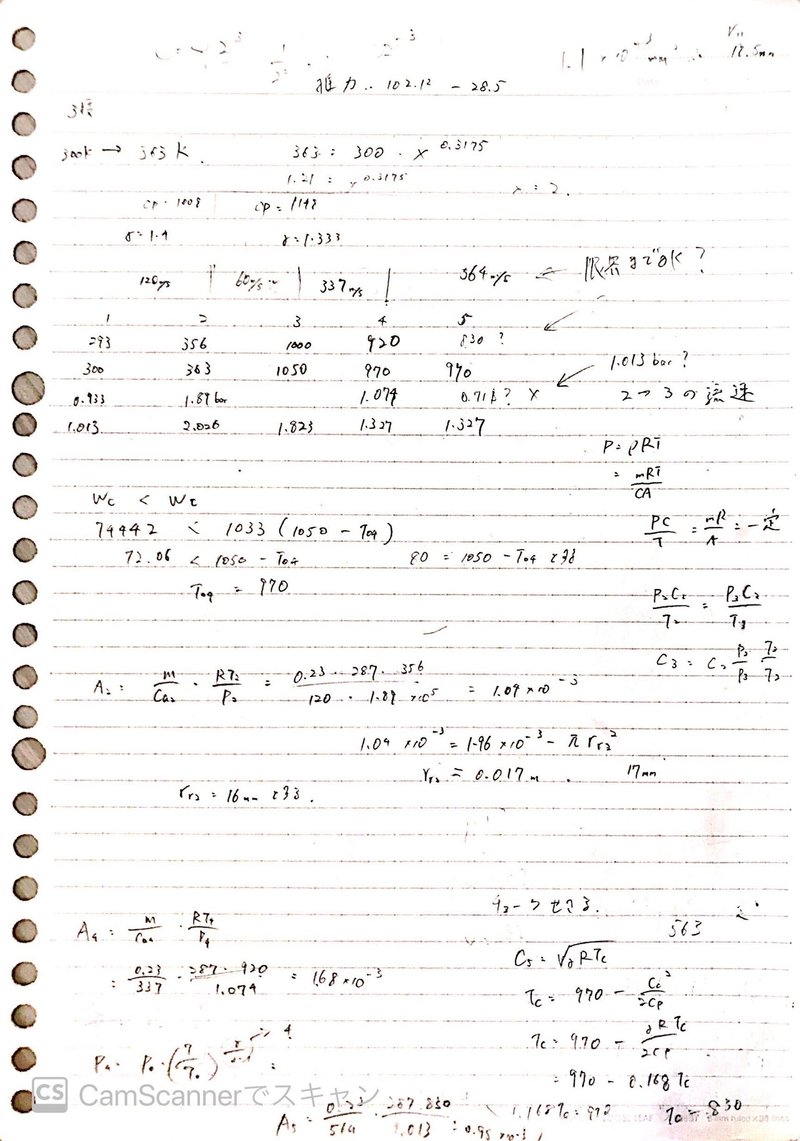 推力‥ 102.12 - 28.5
1.1 × 10⁻³ mm²
18.5mm
3段
300K → 363K.
363 = 300 · x^0.3175
1.21 = x^0.3175
x = 2.
cp = 1008 cp = 1148
γ = 1.4 γ = 1.333
120m/s 60m/s 337m/s 564m/s ← 限界までOK?
1 2 3 4 5
293 356 1000 920 830?
300 363 1050 970 970
1.013 bar?
0.933 1.89 bar 1.074 0.718? × 2→3の流速
1.013 2.026 1.823 1.327 1.327
P = ρRT
= mRT/CA
Wc < Wt
74442 < 1033 (1050 - T04)
PC/T = mR/A = 一定
72.06 < 1050 - T04 80 = 1050 - T04 とする
T04 = 970
P2C2/T2 = P3C3/T3
C3 = C2 P2/P3 T3/T2
A2 = m/Ca2 · RT2/P2 = 0.23 · 287 · 356 / 120 · 1.89 × 10⁵ = 1.09 × 10⁻³
1.09 × 10⁻³ = 1.96 × 10⁻³ - π rr2²
rr2 = 0.017m. 17mm
rr2 = 16mm とする.
チョークさせる.
563
A4 = m/Ca4 · RT4/P4
= 0.23/337 · 287 · 920/1.074 = 1.68 × 10⁻³
C5 = √γRTc
Tc = 970 - Cc²/2Cp
Tc = 970 - γRTc/2Cp
= 970 - 0.168 Tc
1.168Tc = 970 Tc = 830
P4 = P0 · (T/T0)^γ/γ-1
A5 = 0.23/514 · 287·830/1.013 = 0.95 × 10⁻³
CS CamScannerでスキャン